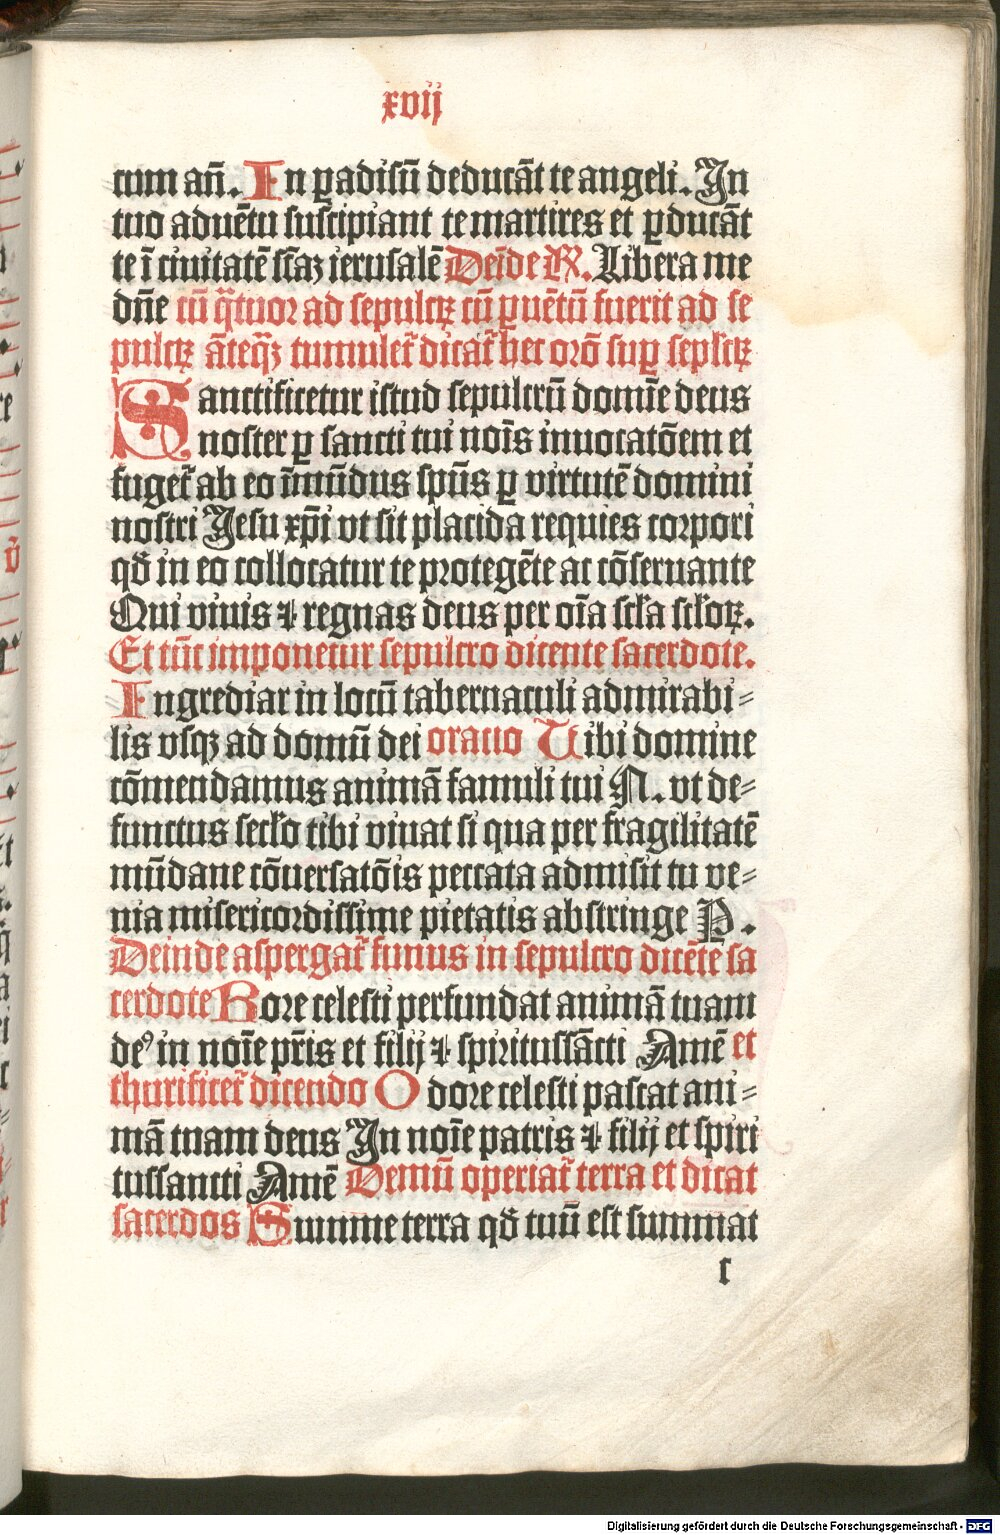 xvij
tum an̄. In ꝑadisū deducāt te angeli. In
tuo aduētu suscipiant te martires et ꝑducāt
te ī ciuitatē sc̄aꝫ ierusalē Deīde R̷. Libera me
dn̄e cū q̄tuor ad sepulcꝝ cū ꝑuētū fuerit ad se
pulcꝝ āteqꝫ tumulet᷑ dicat᷑ hec orō suꝑ seplcꝝ
Sanctificetur istud sepulcrū domīe deus
noster ꝑ sancti tui noīs inuocatōem et
fuget᷑ ab eo īmūdus spūs ꝑ virtutē domini
nostri Jesu xp̄i vt sit placida requies corpori
qđ in eo collocatur te protegēte ac cōseruante
Qui viuis ⁊ regnas deus per oīa scƚa scƚoꝝ.
Et tūc imponetur sepulcro dicente sacerdote.
Ingrediar in locū tabernaculi admirabi⸗
lis vsqꝫ ad domū dei oratio Tibi domine
cōmendamus animā famuli tui N. vt de⸗
functus secƚo tibi viuat si qua per fragilitatē
mūdane cōuersatōis peccata admisit tu ve⸗
nia misericordissime pietatis abstringe P.
Deinde aspergat᷑ funus in sepulcro dicēte sa
cerdote Rore celesti perfundat animā tuam
deꝰ in noīe pr̄is et filij ⁊ spiritussācti Amē et
thurificet᷑ dicendo Odore celesti pascat ani⸗
mā tuam deus In noīe patris ⁊ filij et spiri
tussancti Amē Demū operiat᷑ terra et dicat
sacerdos Summe terra qđ tuū est summat
c
Digitalisierung gefördert durch die Deutsche Forschungsgemeinschaft - DFG